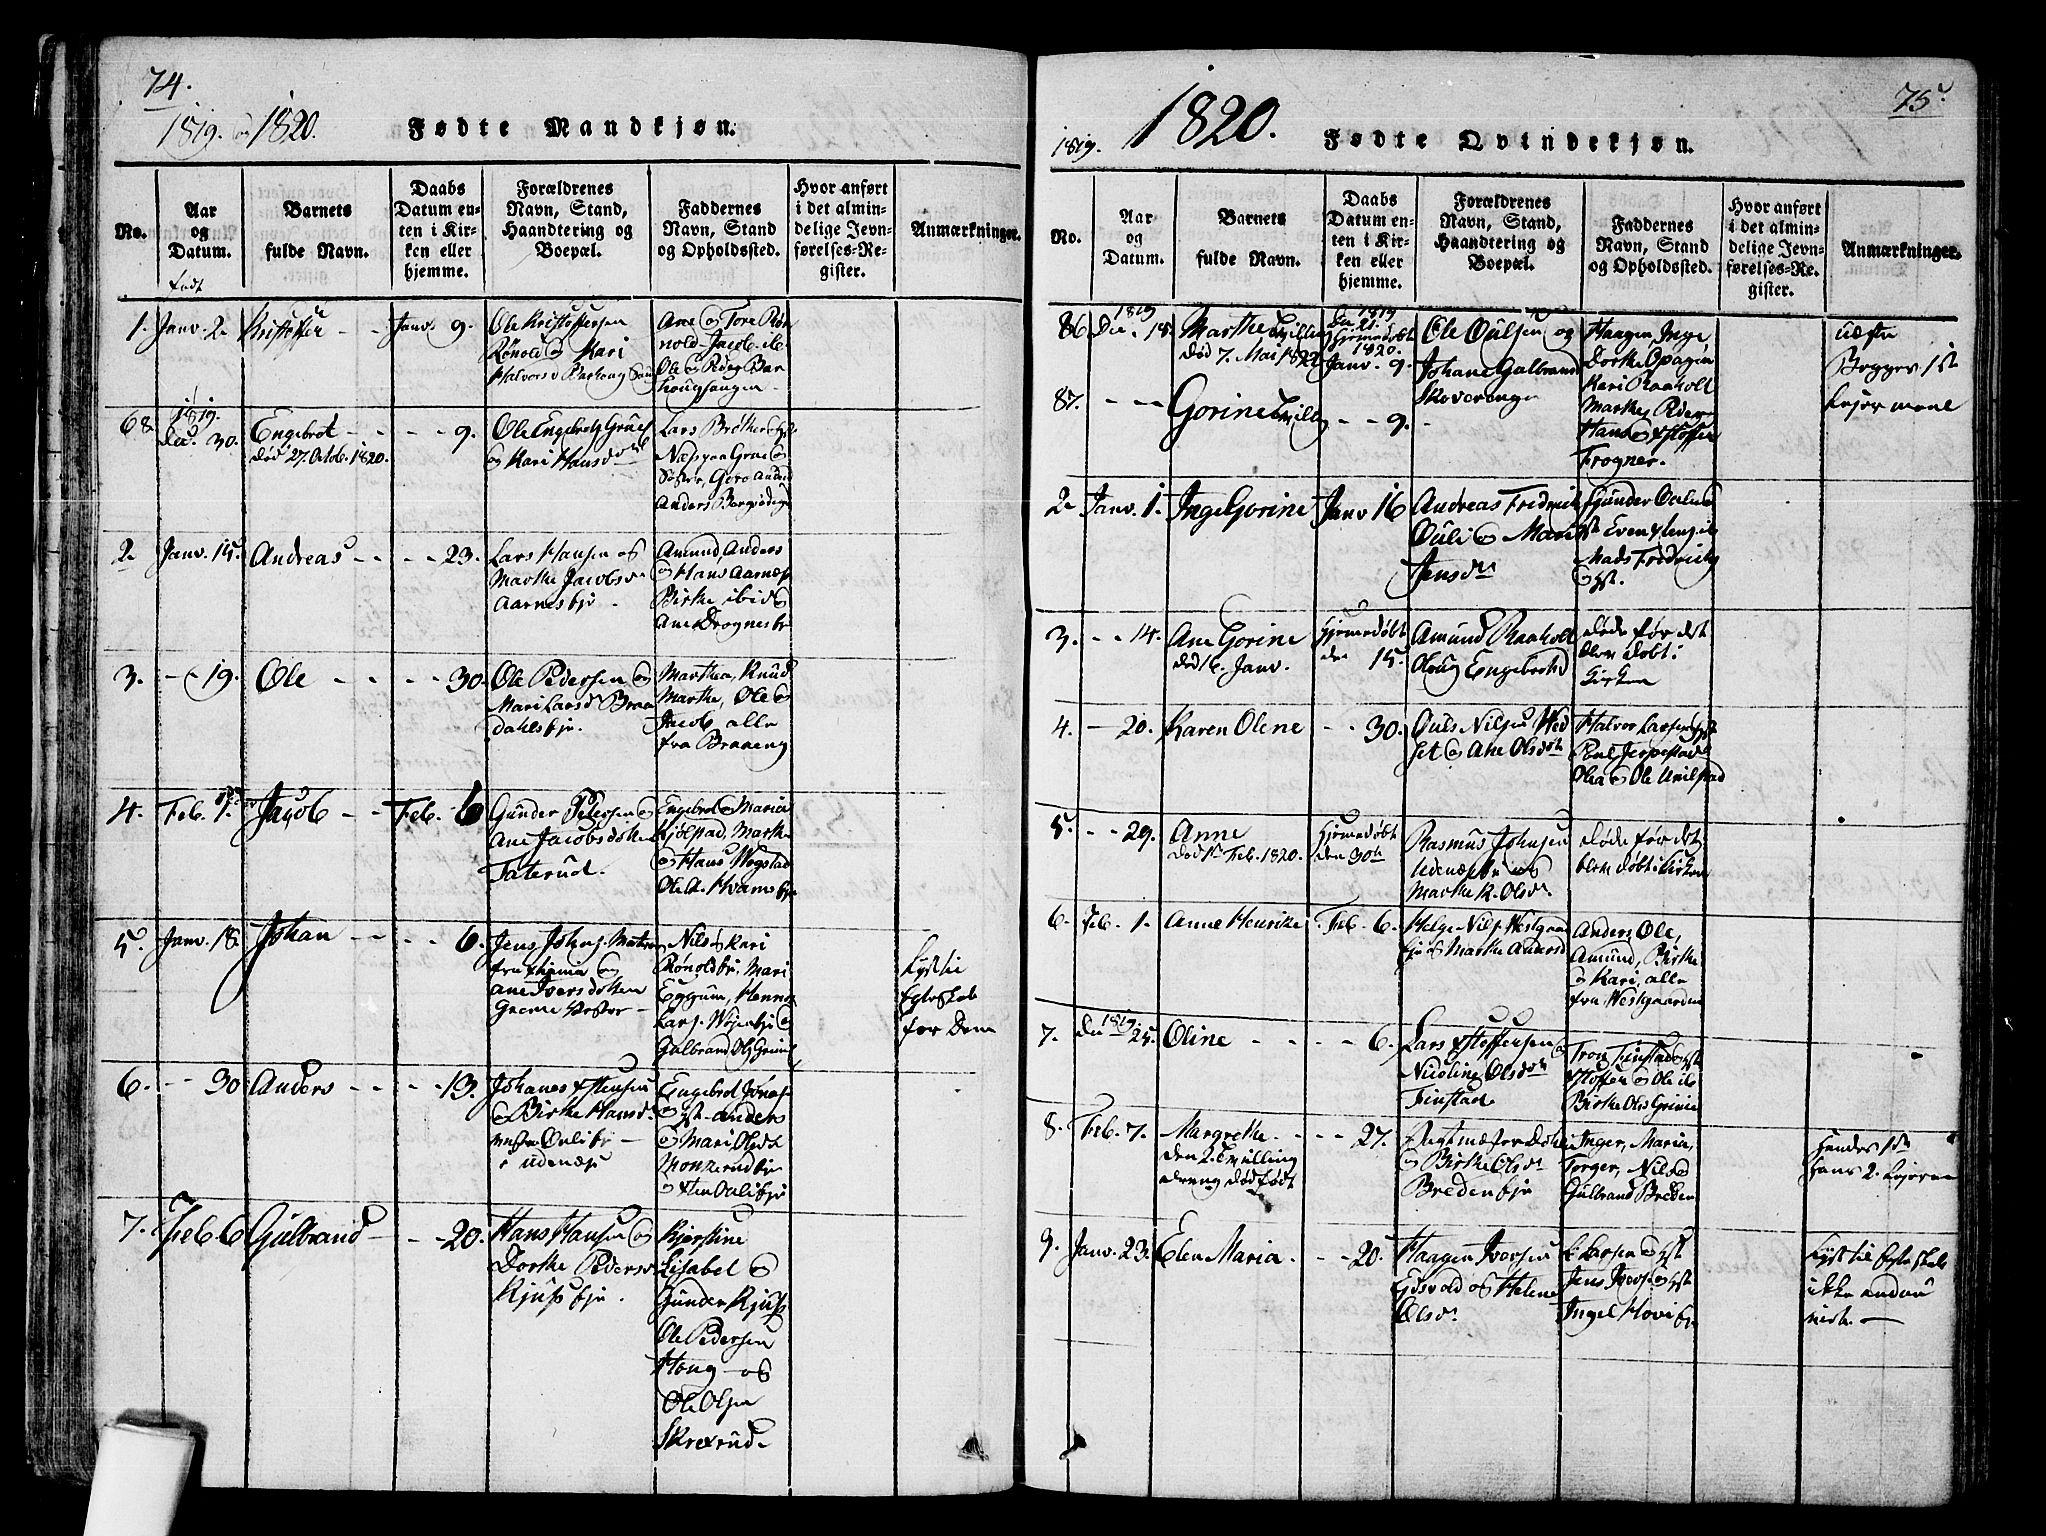 74.
1819. og 1820. Fødte Mandkjøn.
No.
Aar
og
Datum.
født
Barnets
fulde Navn.
Daabs
Datum en-
ten i Kir-
ken eller
hjemme.
Forældrenes
Navn, Stand,
Haandtering og
Boepæl.
Faddernes
Navn, Stand
og Opholdssted.
Hvor anført
i det almin-
delige Jevn-
førelses-Re-
gister.
Anmærkninger.
1. Janv. 2.
Kristoffer
Janv. 9.
Ole Kristoffersen
Rønold og Kari
Halvorsd
Ane og Tore Røn
nold, Jacob ib.
Ole og Peder
68.
1819.
Dec. 30.
Engebret
død 27. Octob. 1820.
9.
Ole Engebretz
og Kari Hansd
Lars
Anders
2. Janv. 15.
Andreas
23.
Lars Hansen og
Marthe Jacobsd
Aarnesbje.
Amund, Anders
og Hans Aarnes
Birthe ibid og
Ane Drognesbje
3. 19.
Ole
30.
Ole Pedersen og
Mari Larsd Braa
dahlsbje.
Marthea, Knud
Marthe, Ole og
Jacob, alle
fra Braaeng
4. Feb. 1.
Jacob
Feb. 6
Gunder Petersen og
Ane Jacobsdotter
Taterud.
Engebret og Maria
Kjølstad, Marthe
og Hans Wogstad
Ole A. Hvamsbje
5. Janv. 18.
Johan
6.
Jens Johns. Matros
fra Xiania og
Ane Iversdotter
Nils og Kari
Rønoldbje, Mari
Eggum, Henno
Lars.
Gulbrand Ols
for Dem
6. 30
Anders
13.
Johanes Xstensen
og Birthe Hansd.
Ovlibje
i Udenæs
Engebret
Anders
og Mari Olsdt
og Xten Ovlibje
7. Feb. 6
Gulbrand
20.
Hans Hansen og
Dorthe Pedersd
Kjussbje.
Kjerstine
Lisabet og
Gunder Kjuss
Ole Pedersen
Houg og
Ole Olsen
Skrexrud.
75.
1819. 1820. Fødte Qvindekjøn.
No.
Aar
og
Datum.
Barnets
fulde Navn.
Daabs
Datum en-
ten i Kir-
ken eller
hjemme.
Forældrenes
Navn, Stand,
Haandtering og
Boepæl.
Faddernes
Navn, Stand
og Opholdssted.
Hvor anført
i det almin-
delige Jevn-
førelses-Re-
gister.
Anmærkninger.
86
1819
Dec. 15.
Marthe Tvilling
død 7. Mai 1822
1819
Dec. 21.
hjemedøbt
1820.
Janv. 9.
Ole Oulsen og
Johane Gulbrand
Skoverenge
Haagen, Inge
Dorthe Opagen
Kari Raaholt
Marthe, Peder
Hans og Xstoffer
Frogner.
uægte
Begges 1ste
Leiermaal
87.
Gorine Tvilling
9.
2 Janv. 1.
Ingeborine
Janv 16
Andreas Fredrik
Ouli og Mari
Jensdtr
Gunder Ovlie
Mads Fredrik
3. 14.
Ane Gorine
død 16. Janv.
hjemedøbt
den 15.
Amund Raaholt
Oloug Engebretsd
døde før det
blev døbt i
Kirken
4. 20.
Karen Olene
30.
Ouls Nilsen Wed
set og Ane Olsdtr
Halvor Larsen
Poul Jeppestad
Olea og Ole
5. 29.
Anne
død 1st Feb. 1820.
hjemedøbt
den 30te
Rasmus Johnsen
Udenæsbje og
Marthe K. Olsdr.
døde før det
blev døbt i Kirken
6. Feb. 1.
Anne Henrike
Feb. 6.
Helge Nils. Westgaar
bje og Marthe Andersd
Anders, Ole,
Amund, Birthe
og Kari, alle
fra Westgaarden
7.
1819
Dec 25.
Oline
6.
Lars Xstoffersen og
Nicoline Olsdtr
Finstad
Tron Finstad
Xstoffer og Ole ib
Birthe Ols Grinie
8. Feb. 7.
Margrethe
den 2. Tvilling
dreng dødfødt
27.
og Birthe Olsdr
Bredenbje
Inger, Maria,
Torger, Nils og
Gulbrand Breden
Hendes 1ste
hans 2. Leierm
9. Janv. 23.
Elen Maria
20.
Haagen Iversen
Eidsvold og Helene
Olsdr
L. Larsen
Jens Iversen
Ingel Hovibje
ikke endnu
viet.